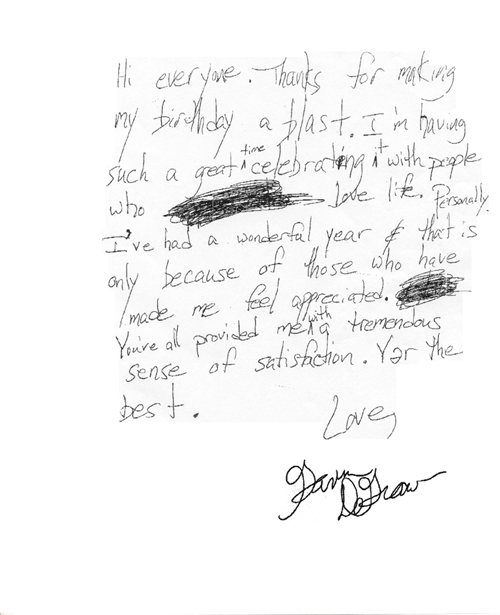 Hi everyone. Thanks for making
my birthday a blast. I'm having
such a great time celebrating it with people
who love life. Personally
I've had a wonderful year & that is
only because of those who have
made me feel appreciated.
You've all provided me with a tremendous
sense of satisfaction. Yer the
best.
Love,
Gavin
DeGraw